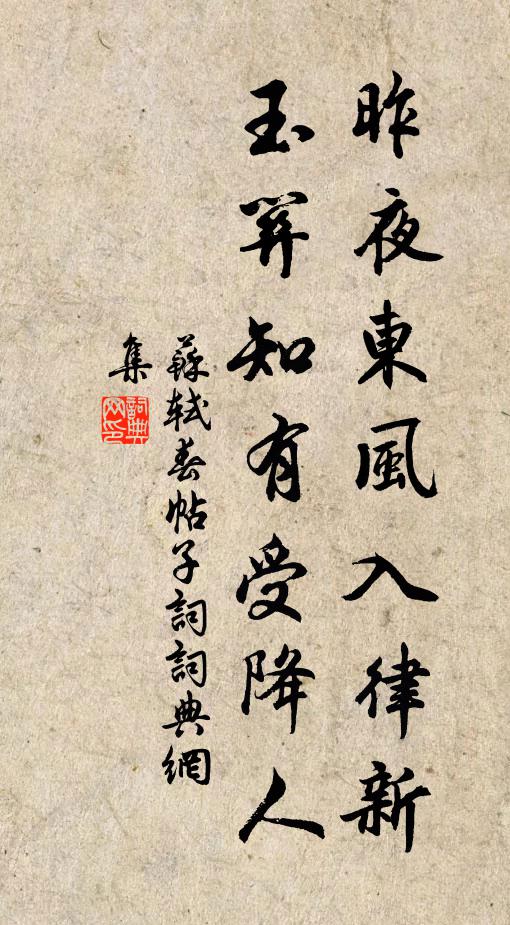 昨夜東風入律新
玉關知有受降人
蘇軾春帖子詞詞典網
集
詞典網印